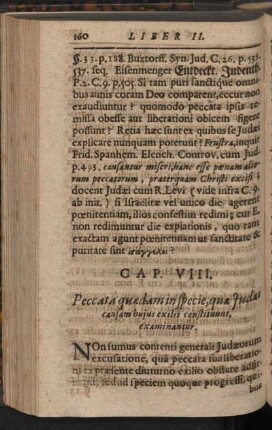 160 LIBER II.
§. 33. p. 188. Buxtorff. Syn. Jud. C. 26. p. 531.
537. seq. Eisenmenger Entdeckt. Judenth.
P. 2. C. 9. p. 505. Si tam puri sanctique omni-
bus annis coram Deo comparent, eccur non
exaudiuntur? quomodo peccata ipsis re-
missa obesse aut liberationi obicem figere
possunt? Retia hæc sunt ex quibus se Judæi
explicare nunquam poterunt? Frustra, inquit
Frid. Spanhem. Elench. Controv. cum Jud.
p. 493. causantur miseri, hanc esse pœnam alio-
rum peccatorum, præterquam Christi excisi;
docent Judæi cum R. Levi (vide infra C. 9.
ab init.) si Israelitæ vel unico die agerent
pœnitentiam, illos confestim redimi; cur E.
non redimuntur die expiationis, quo tam
exactam agunt pœnitentiam ut sanctitate &
puritate sint
CAP. VIII.
Peccata quædam in specie, quæ Judæi
causam hujus exilii constituunt,
examinantur.
NOn sumus contenti generali Judæorum
excusatione, quâ peccata sua liberatio-
ni ex præsente diuturno exilio obstare
tant, sed ad speciem quoque progressi,
bus